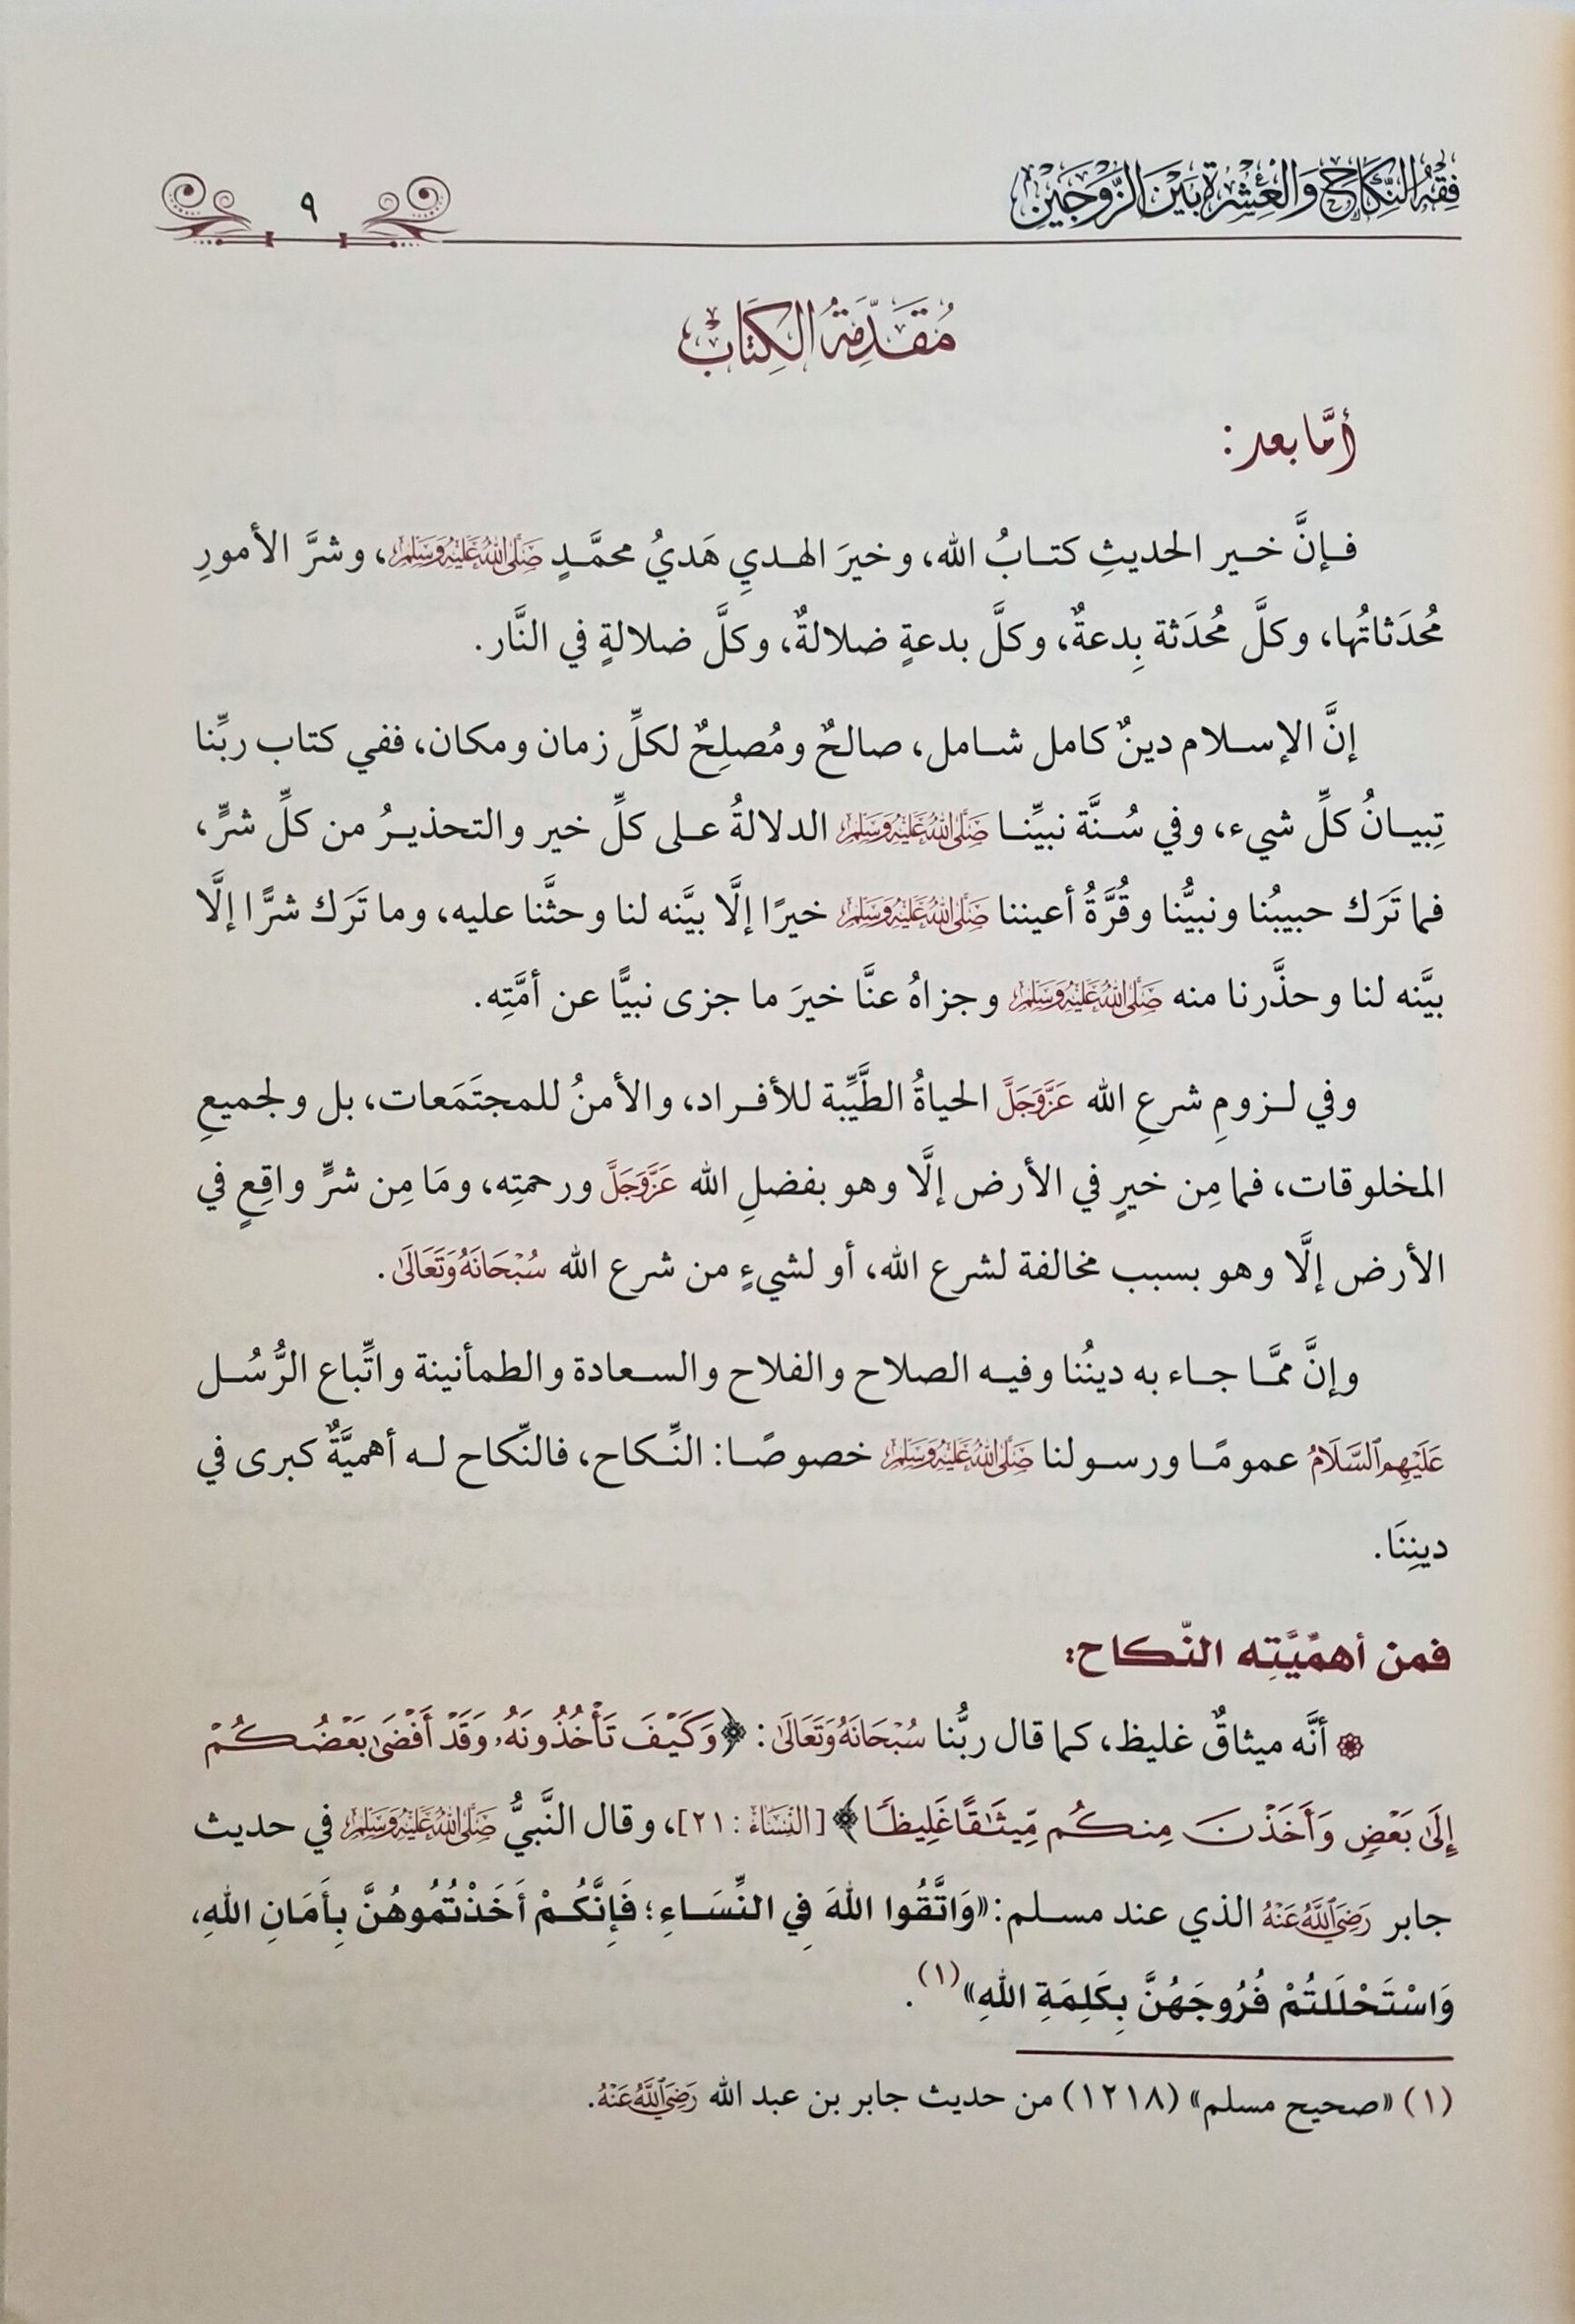 فِقْهُ النِّكَاحِ وَالْعِشْرَةِ بَيْنَ الزَّوْجَيْنِ
٩
مُقَدِّمَةُ الكِتَابِ
أمَّا بعد:
فإنَّ خير الحديثِ كتابُ الله، وخيرَ الهديِ هَديُ محمَّدٍ صَلَّى اللَّهُ عَلَيْهِ وَسَلَّمَ، وشرَّ الأمورِ
مُحُدَثاتُها، وكلَّ مُحُدَثة بِدعةٌ، وكلَّ بدعةٍ ضلالةٌ، وكلَّ ضلالةٍ في النَّار.
إنَّ الإسلام دينٌ كامل شامل، صالحٌ ومُصلِحٌ لكلِّ زمان ومكان، ففي كتاب ربِّنا
تِبيانُ كلِّ شيء، وفي سُنَّة نبيِّنا صَلَّى اللَّهُ عَلَيْهِ وَسَلَّمَ الدلالةُ على كلِّ خير والتحذيرُ من كلِّ شرٍّ،
فما تَرَك حبيبُنا ونبيُّنا وقُرَّةُ أعيننا صَلَّى اللَّهُ عَلَيْهِ وَسَلَّمَ خيرًا إلَّا بيَّنه لنا وحثَّنا عليه، وما تَرَك شرًّا إلَّا
بيَّنه لنا وحذَّرنا منه صَلَّى اللَّهُ عَلَيْهِ وَسَلَّمَ وجزاهُ عنَّا خيرَ ما جزى نبيًّا عن أمَّتِه.
وفي لزومِ شرعِ الله عَزَّوَجَلَّ الحياةُ الطَّيِّبة للأفراد، والأمنُ للمجتَمَعات، بل ولجميعِ
المخلوقات، فما مِن خيرٍ في الأرض إلَّا وهو بفضلِ الله عَزَّوَجَلَّ ورحمتِه، ومَا مِن شرٍّ واقِعٍ في
الأرض إلَّا وهو بسبب مخالفة لشرع الله، أو لشيءٍ من شرع الله سُبْحَانَهُ وَتَعَالَىٰ.
وإنَّ ممَّا جاء به دينُنا وفيه الصلاح والفلاح والسعادة والطمأنينة واتِّباع الرُّسُل
عَلَيْهِمُ ٱلسَّلَامُ عمومًا ورسولنا صَلَّى اللَّهُ عَلَيْهِ وَسَلَّمَ خصوصًا: النِّكاح، فالنِّكاح له أهميَّةٌ كبرى في
دينِنَا.
فمن أهمِّيَّتِه النّكاح:
أنَّه ميثاقٌ غليظ، كما قال ربُّنا سُبْحَانَهُ وَتَعَالَىٰ: ﴿وَكَيْفَ تَأْخُذُونَهُۥ وَقَدْ أَفْضَىٰ بَعْضُكُمْ
إِلَىٰ بَعْضٍ وَأَخَذْنَ مِنكُم مِّيثَٰقًا غَلِيظًا﴾ [النِّسَاء: ٢١]، وقال النَّبيُّ صَلَّى اللَّهُ عَلَيْهِ وَسَلَّمَ في حديث
جابر رَضِيَ ٱللَّهُ عَنْهُ الذي عند مسلم: «وَاتَّقُوا اللهَ فِي النِّسَاءِ؛ فَإِنَّكُمْ أَخَذْتُمُوهُنَّ بِأَمَانِ اللهِ،
وَاسْتَحْلَلتُمْ فُرُوجَهُنَّ بِكَلِمَةِ اللهِ»(١).
(١) «صحيح مسلم» (١٢١٨) من حديث جابر بن عبد الله رَضِيَ ٱللَّهُ عَنْهُ.